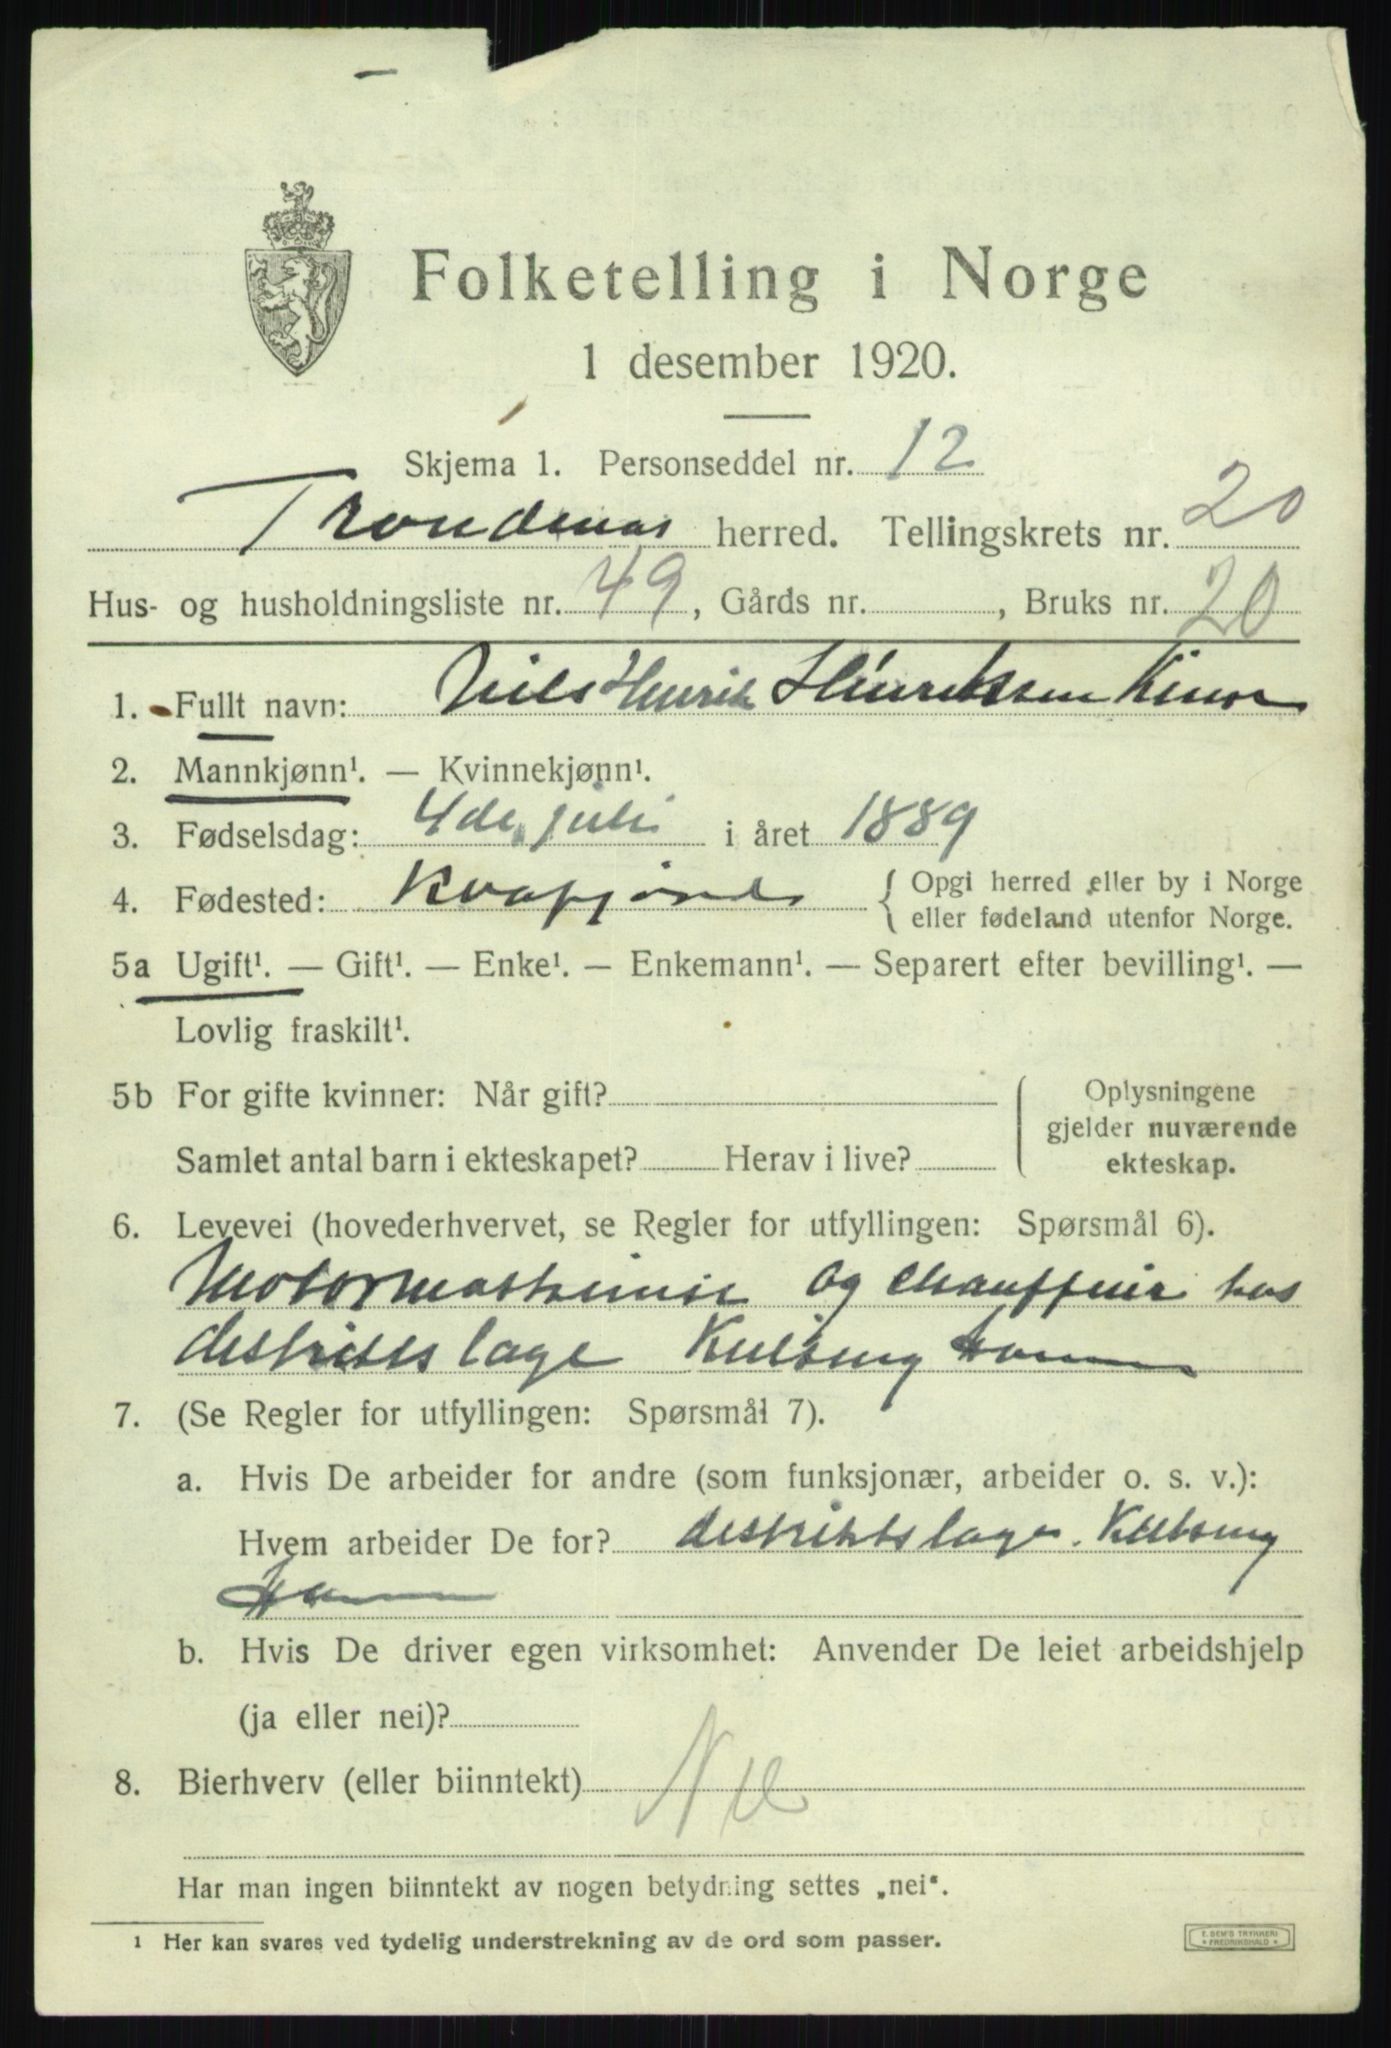 Folketelling i Norge
1 desember 1920.
Skjema 1. Personseddel nr. 12
Trondenas herred. Tellingskrets nr. 20
Hus- og husholdningsliste nr. 49, Gårds nr. , Bruks nr. 20
1. Fullt navn: Nils Henrik Hinriksen
2. Mannkjønn¹. — Kvinnekjønn¹.
3. Fødselsdag: 4de juli i året 1889
4. Fødested: Kvæfjord { Opgi herred eller by i Norge
eller fødeland utenfor Norge.
5a Ugift¹. — Gift¹. — Enke¹. — Enkemann¹. — Separert efter bevilling¹. —
Lovlig fraskilt¹.
5b For gifte kvinner: Når gift?
Samlet antal barn i ekteskapet? Herav i live?
Oplysningene
gjelder nuværende
ekteskap.
6. Levevei (hovederhvervet, se Regler for utfyllingen: Spørsmål 6).
Motormaskinist og chauffeur hos
distriktslæge
7. (Se Regler for utfyllingen: Spørsmål 7).
a. Hvis De arbeider for andre (som funksjonær, arbeider o. s. v.):
Hvem arbeider De for? distriktslæge
b. Hvis De driver egen virksomhet: Anvender De leiet arbeidshjelp
(ja eller nei)?
8. Bierhverv (eller biinntekt) Nei
Har man ingen biinntekt av nogen betydning settes „nei“.
¹ Her kan svares ved tydelig understrekning av de ord som passer.
E. SEM'S TRYKKERI
* FREDRIKSHALD *